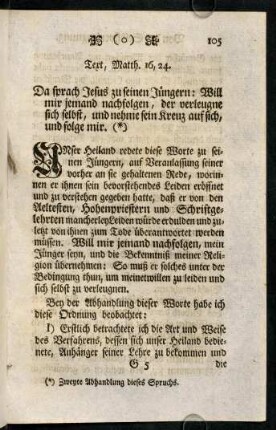 ( o ) 105
Text, Matth. 16, 24.
Da sprach Jesus zu seinen Jüngern: Will
mir jemand nachfolgen, der verleugne
sich selbst, und nehme sein Kreuz auf sich,
und folge mir. (*)
UNser Heiland redete diese Worte zu sei-
nen Jüngern, auf Veranlassung seiner
vorher an sie gehaltenen Rede, worin-
nen er ihnen sein bevorstehendes Leiden eröffnet
und zu verstehen gegeben hatte, daß er von den
Aeltesten, Hohenpriestern und Schriftge-
lehrten mancherley Leiden würde erdulden und zu-
letzt von ihnen zum Tode überantwortet werden
müssen. Will mir jemand nachfolgen, mein
Jünger seyn, und die Bekenntniß meiner Reli-
gion übernehmen: So muß er solches unter der
Bedingung thun, um meinetwillen zu leiden und
sich selbst zu verleugnen.
Bey der Abhandlung dieser Worte habe ich
diese Ordnung beobachtet:
I) Erstlich betrachtete ich die Art und Weise
des Verfahrens, dessen sich unser Heiland bedie-
nete, Anhänger seiner Lehre zu bekommen und
G 5 die
(*) Zweyte Abhandlung dieses Spruchs.